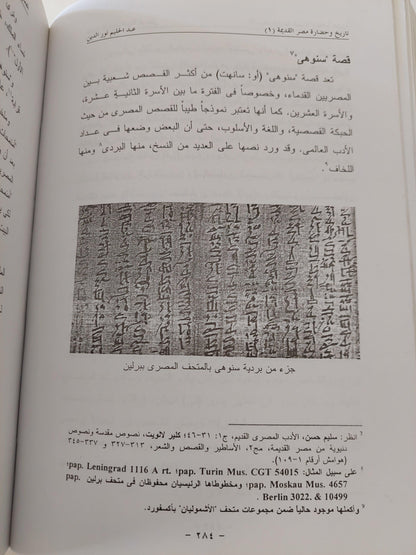 تاريخ وحضارة مصر القديمة (١)
عبد الحليم نور الدين
قصة "سنوهى"٧
تعد قصة "سنوهى" (أو: سانهت) من أكثر القصص شعبية بين
المصريين القدماء، وخصوصاً فى الفترة ما بين الأسرة الثانية عشرة،
والأسرة العشرين. كما أنها تعتبر نموذجاً طيباً للقصص المصرى من حيث
الحبكة القصصية، واللغة والأسلوب، حتى أن البعض وضعها فى عداد
الأدب العالمى. وقد ورد نصها على العديد من النسخ، منها البردى٨ ومنها
اللخاف٩.
جزء من بردية سنوهى بالمتحف المصرى ببرلين
انظر: سليم حسن، الأدب المصرى القديم، ج١: ٣١-٤٦؛ كلير لالويت، نصوص مقدسة ونصوص
دنيوية من مصر القديمة، مج٢، الأساطير والقصص والشعر، ٣١٣-٣٢٧ و ٣٣٧-٣٤٥
(هوامش أرقام ١-١٠٩).
على سبيل المثال: pap. Turin Mus. CGT 54015؛ pap. Leningrad 1116 A rt.؛
pap. Moskau Mus. 4657؛ ومخطوطاها الرئيسيان محفوظان فى متحف برلين pap.
Berlin 3022. & 10499.
وأكملها موجود حالياً ضمن مجموعات متحف "الأشموليان" بأكسفورد.
- ٢٨٤ -